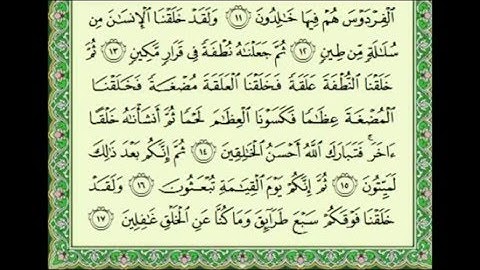 الْفِرْدَوْسَ هُمْ فِيهَا خَالِدُونَ ﴿١١﴾ وَلَقَدْ خَلَقْنَا الْإِنسَانَ مِن
سُلَالَةٍ مِّن طِينٍ ﴿١٢﴾ ثُمَّ جَعَلْنَاهُ نُطْفَةً فِي قَرَارٍ مَّكِينٍ ﴿١٣﴾ ثُمَّ
خَلَقْنَا النُّطْفَةَ عَلَقَةً فَخَلَقْنَا الْعَلَقَةَ مُضْغَةً فَخَلَقْنَا
الْمُضْغَةَ عِظَامًا فَكَسَوْنَا الْعِظَامَ لَحْمًا ثُمَّ أَنشَأْنَاهُ خَلْقًا
ءَاخَرَ ۚ فَتَبَارَكَ اللَّهُ أَحْسَنُ الْخَالِقِينَ ﴿١٤﴾ ثُمَّ إِنَّكُم بَعْدَ ذَٰلِكَ
لَمَيِّتُونَ ﴿١٥﴾ ثُمَّ إِنَّكُمْ يَوْمَ الْقِيَامَةِ تُبْعَثُونَ ﴿١٦﴾ وَلَقَدْ
خَلَقْنَا فَوْقَكُمْ سَبْعَ طَرَائِقَ وَمَا كُنَّا عَنِ الْخَلْقِ غَافِلِينَ ﴿١٧﴾